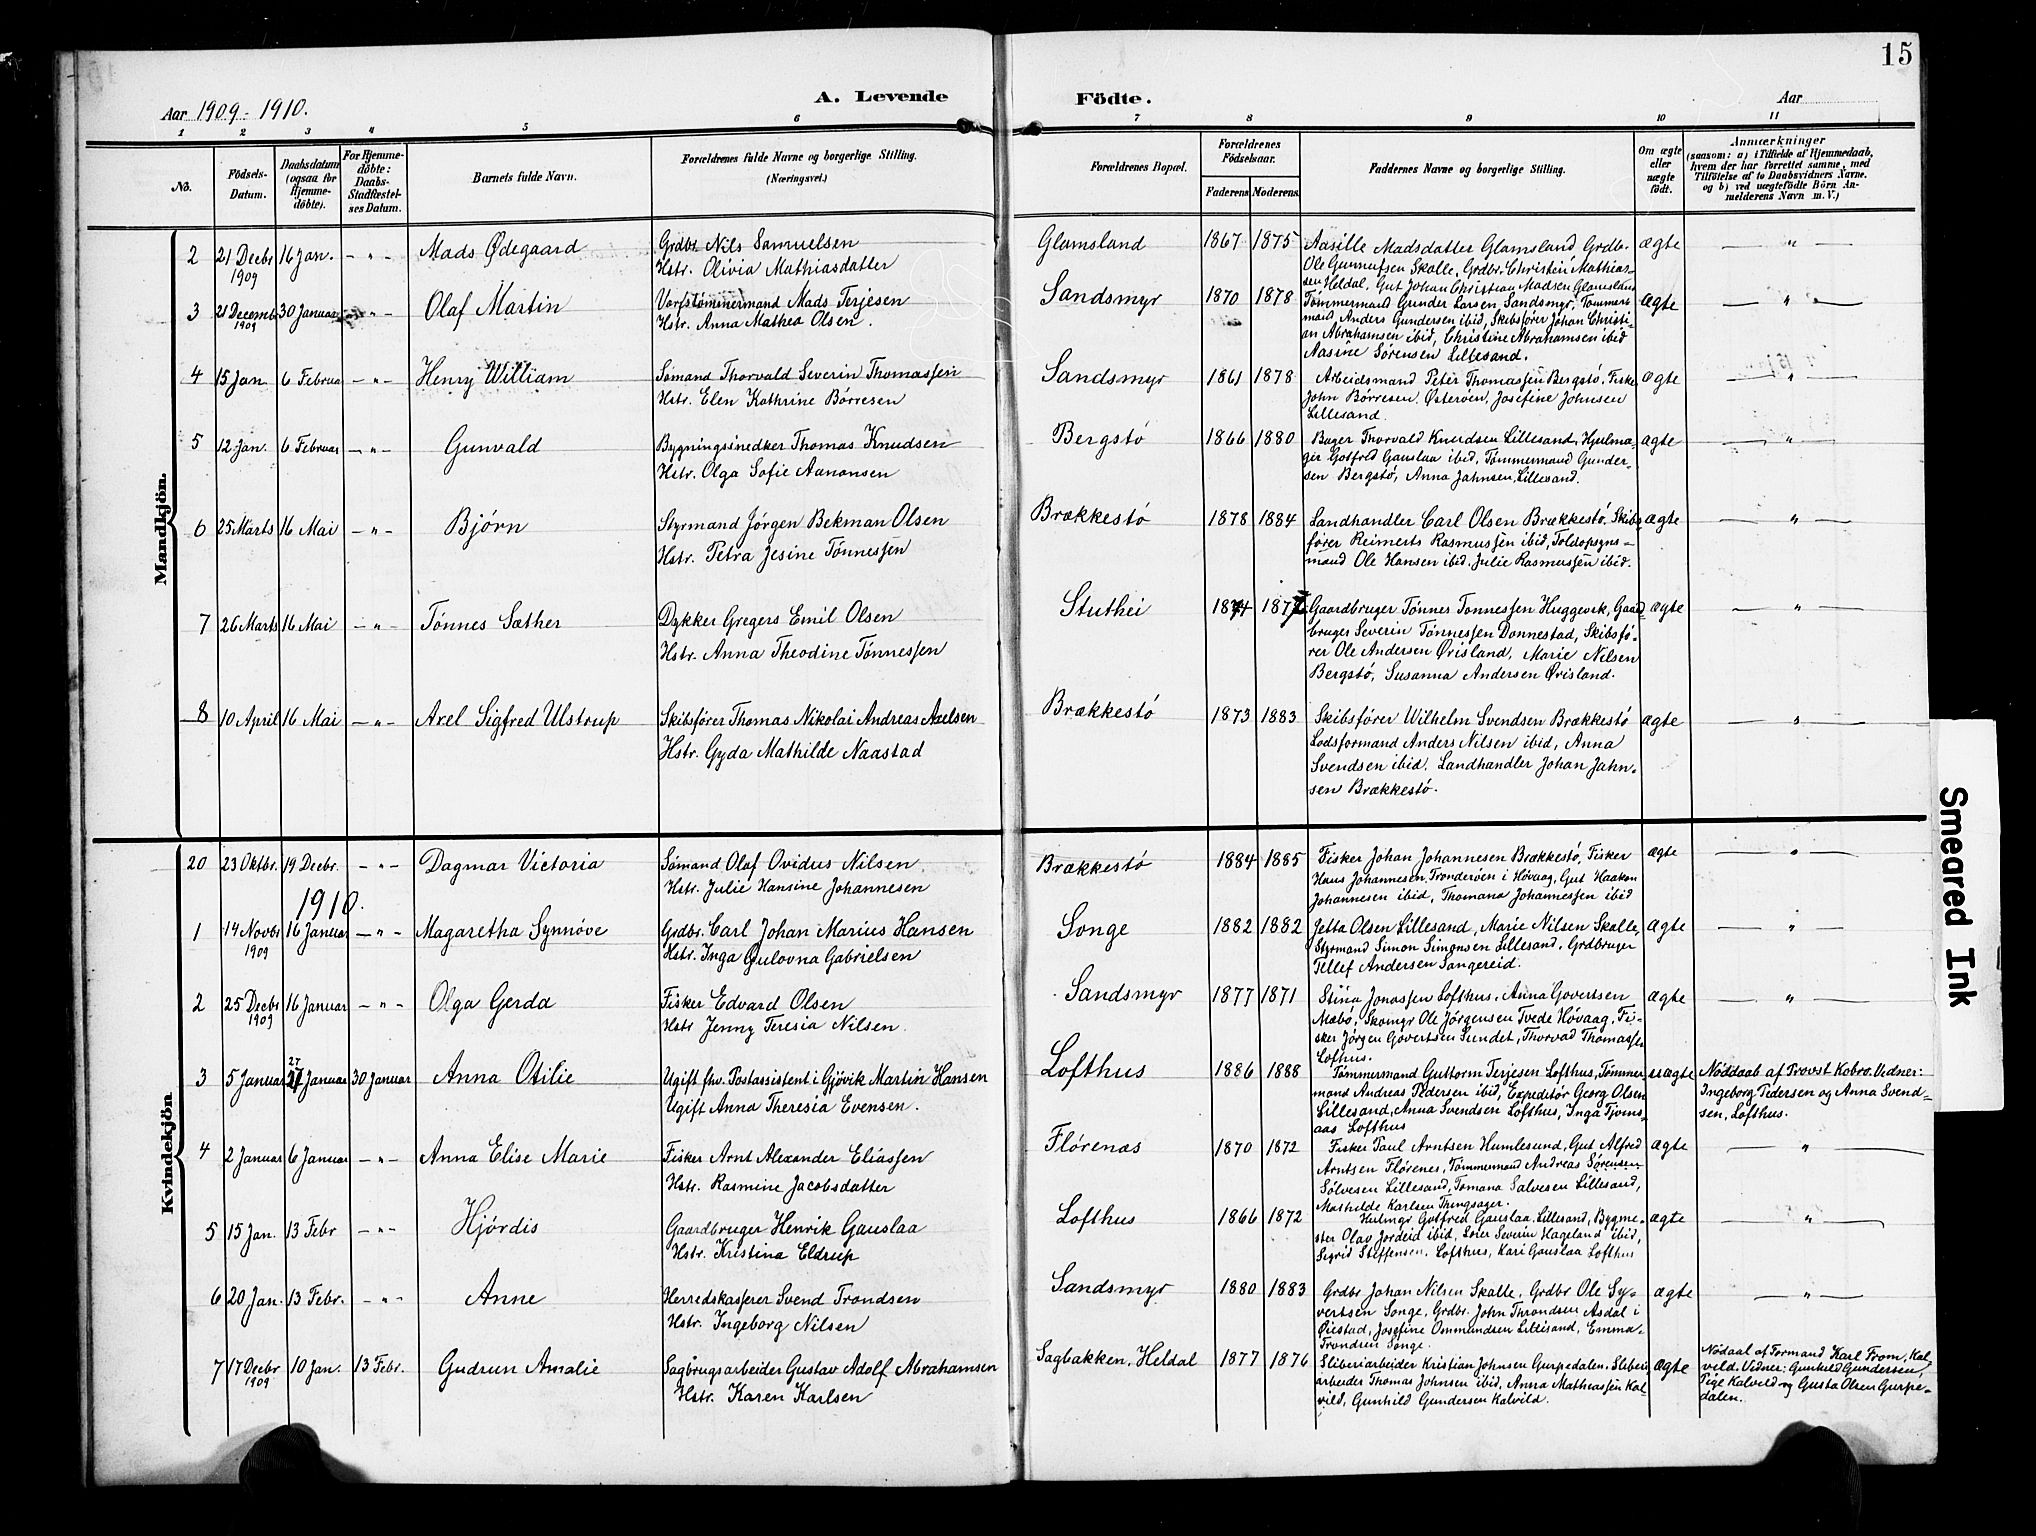 15
Aar 1909-1910.
A. Levende
Födte.
Aar
1 2 3 4 5 6 7 8 9 10 11
No.
Födsels-
Datum.
Daabsdatum
(ogsaa for
Hjemme-
döbte).
For Hjemme-
döbte:
Daabs-
Stadfæstel-
ses Datum.
Barnets fulde Navn.
Forældrenes fulde Navne og borgerlige Stilling.
(Næringsvei.)
Forældrenes Bopæl.
Forældrenes
Födselsaar.
Faderens. Moderens.
Faddernes Navne og borgerlige Stilling.
Om ægte
eller
uægte
födt.
Anmærkninger
(saasom: a) i Tilfælde af Hjemmedaab,
hvem der har forrettet samme, med
Tilföielse af to Daabsvidners Navne.
og b) ved uægtefödte Börn An-
melderens Navn m. V.)
Mandkjön.
2 21 Decbr 1909 16 Jan. - " - Mads Ødegaard
Grdbr. Nils Samuelsen
Hstr. Olivia Mathiasdatter
Glamsland 1867 1875
Aasille Madsdatter Glamsland, Grdb.
Ole Gunnufsen Skalle, Grdbr. Christen Mathias-
sen Heldal, Gut Johan Christian Madsen Glamsland
ægte - " -
3 21 Decemb 1909 30 Januar - " - Olaf Martin
Værfstømmermand Mads Terjesen
Hstr. Anna Mathea Olsen.
Sandsmyr 1870 1878
Tømmermand Gunder Larsen Sandsmyr, Tømmer-
mand Anders Gundersen ibid, Skibsfører Johan Christi-
an Abrahamsen ibid, Christine Abrahamsen ibid
Aasine Sørensen Lillesand.
ægte - " -
4 15 Jan 6 Februa - " - Henry William
Sømand Thorvald Severin Thomassen
Hstr. Elen Kathrine Børresen
Sandsmyr 1861 1878
Arbeidsmand Peter Thomassen Bergstø, Fisker
John Børresen, Østerøen, Josefine Johnsen
Lillesand.
ægte - " -
5 12 Jan. 6 Februar - " - Gunvald
Bygningssnedker Thomas Knudsen
Hstr. Olga Sofie Aanonsen
Bergstø 1866 1880
Bager Thorvald Knudsen Lillesand, Hjulma-
ger Gotfred Gauslaa ibid, Tømmermand Gunder-
sen Bergstø, Anna Jahnsen, Lillesand.
ægte - " -
6 25 Marts 16 Mai - " - Bjørn
Styrmand Jørgen Bekman Olsen
Hstr. Petra Jesine Tønnessen
Brækkestø 1878 1884
Landhandler Carl Olsen Brækkestø, Skibs-
fører Reimerts Rasmussen ibid, Toldopsyns-
mand Ole Hansen ibid, Julie Rasmussen ibid.
ægte - " -
7 26 Marts 16 Mai - " - Tønnes Sæther
Dykker Gregers Emil Olsen
Hstr. Anna Theodine Tønnessen
Stuthei 1874 1877
Gaardbruger Tønnes Tønnessen Huggevik, Gaard-
bruger Severin Tønnessen Dønnestad, Skibsfø-
rer Ole Andersen Ørisland, Marie Nilsen
Bergstø, Susanna Andersen Ørisland.
ægte - " -
8 10 April 16 Mai - " - Axel Sigfred Ulstrup
Skibsfører Thomas Nikolai Andreas Axelsen
Hstr. Gyda Mathilde Naastad
Brækkestø 1873 1883
Skibsfører Wilhelm Svendsen Brækkestø
Lodsformand Anders Nilsen ibid, Anna
Svendsen ibid. Landhandler Johan Jahn-
sen Brækkestø.
ægte - " -
Kvindekjön
20 23 Oktbr. 19 Decbr. - " - Dagmar Victoria
Sømand Olaf Ovidus Nilsen
Hstr. Julie Hansine Johannesen
Brækkestø 1884 1885
Fisker Johan Johannesen Brækkestø, Fisker
Hans Johannesen, Trondereøen i Høvaag, Gut Haakon
Johannesen ibid, Thomana Johannessen ibid
ægte - " -
1910.
1 14 Novbr 1909 16 Januar - " - Magaretha Synnøve
Grdbr. Carl Johan Marius Hansen
Hstr. Inga Gulovna Gabrielsen
Songe 1882 1882
Jetta Olsen Lillesand, Marie Nilsen Skalle,
Styrmand Simon Simonsen Lillesand, Grdbruger
Tellef Andersen Sangereid.
ægte - " -
2 25 Decbr 1909 16 Januar - " - Olga Gerda
Fisker Edvard Olsen
Hstr Jenny Teresia Nilsen.
Sandsmyr 1877 1871
Stina Jonassen Lofthus, Anna Govertsen
Mæbø, Skomgr Ole Jørgensen Tvede Høvaag, Fi-
sker Jørgen Govertsen Sundet, Thorvad Thomassen
Lofhus.
ægte - " -
3 5 Januar 27 Januar 30 Januar Anna Otilie
Ugift fhv. Postassistent i Gjøvik Martin Hansen
Ugift Anna Theresia Evensen.
Lofthus 1886 1888
Tømmermand Guttorm Terjesen Lofthus, Tømmer-
mand Andreas Pedersen ibid, Expeditør Georg Olsen
Lillesand, Anna Svendsen Lofthus, Inga Tjøms-
aas Lofthus
uægte
Nøddaab af Provst Kobro. Vidner:
Ingeborg Pedersen og Anna Svend-
sen, Lofthus.
4 2 Januar 6 Januar - " - Anna Elise Marie
Fisker Arnt Alexander Eliassen
Hstr. Rasmine Jacobsdatter
Flørenæs 1870 1872
Fisker Paul Arntsen Humlesund, Gut Alfred
Arntsen Flørenes, Tømmermand Andreas Sørensen
Sølvesen Lillesand, Tomana Salvesen Lillesand,
Mathilde Karlsen Thingsager.
ægte - " -
5 15 Jan. 13 Febr - " - Hjørdis
Gaardbruger Henrik Gauslaa
Hstr. Kristina Eldrup
Lofthus 1866 1872
Hulmgr Gotfred Gauslaa, Lillesand, Bygme-
ster Olav Jordeid ibid, Lærer Severin Hageland ibid,
Sigrid Steffensen, Lofthus, Kari Gauslaa Lofthus
ægte - " -
6 20 Jan. 13 Febr. - " - Anne
Herredskasserer Svend Trondsen
Hstr. Ingeborg Nilsen
Sandsmyr 1880 1883
Grdbr Johan Nilsen Skalle, Grdbr Ole Sy-
vertsen Songe, Grdbr. John Throndsen Asdal i
Øiestad, Josefine Ommundsen Lillesand, Emma
Trondsen Songe.
ægte - " -
7 17 Decbr 1909 10 Jan. 13 Febr. Gudrun Amalie
Sagbrugsarbeider Gustav Adolf Abrahamsen
Hstr. Karen Karlsen
Sagbakken, Heldal 1877 1876
Sliberiarbeider Kristian Johnsen Gurpedalen, Sliberi-
arbeider Thomas Johnsen ibid, Anna Mathiassen Kal-
vild, Gunhild Gundersen Kalvild.
ægte
Nødaal af Formand Karl From, Kal-
veld. Vidner: Gunhild Gundersen,
Pige Kalvild og Gusta Olsen Gurpe-
dalen.
Smeared Ink